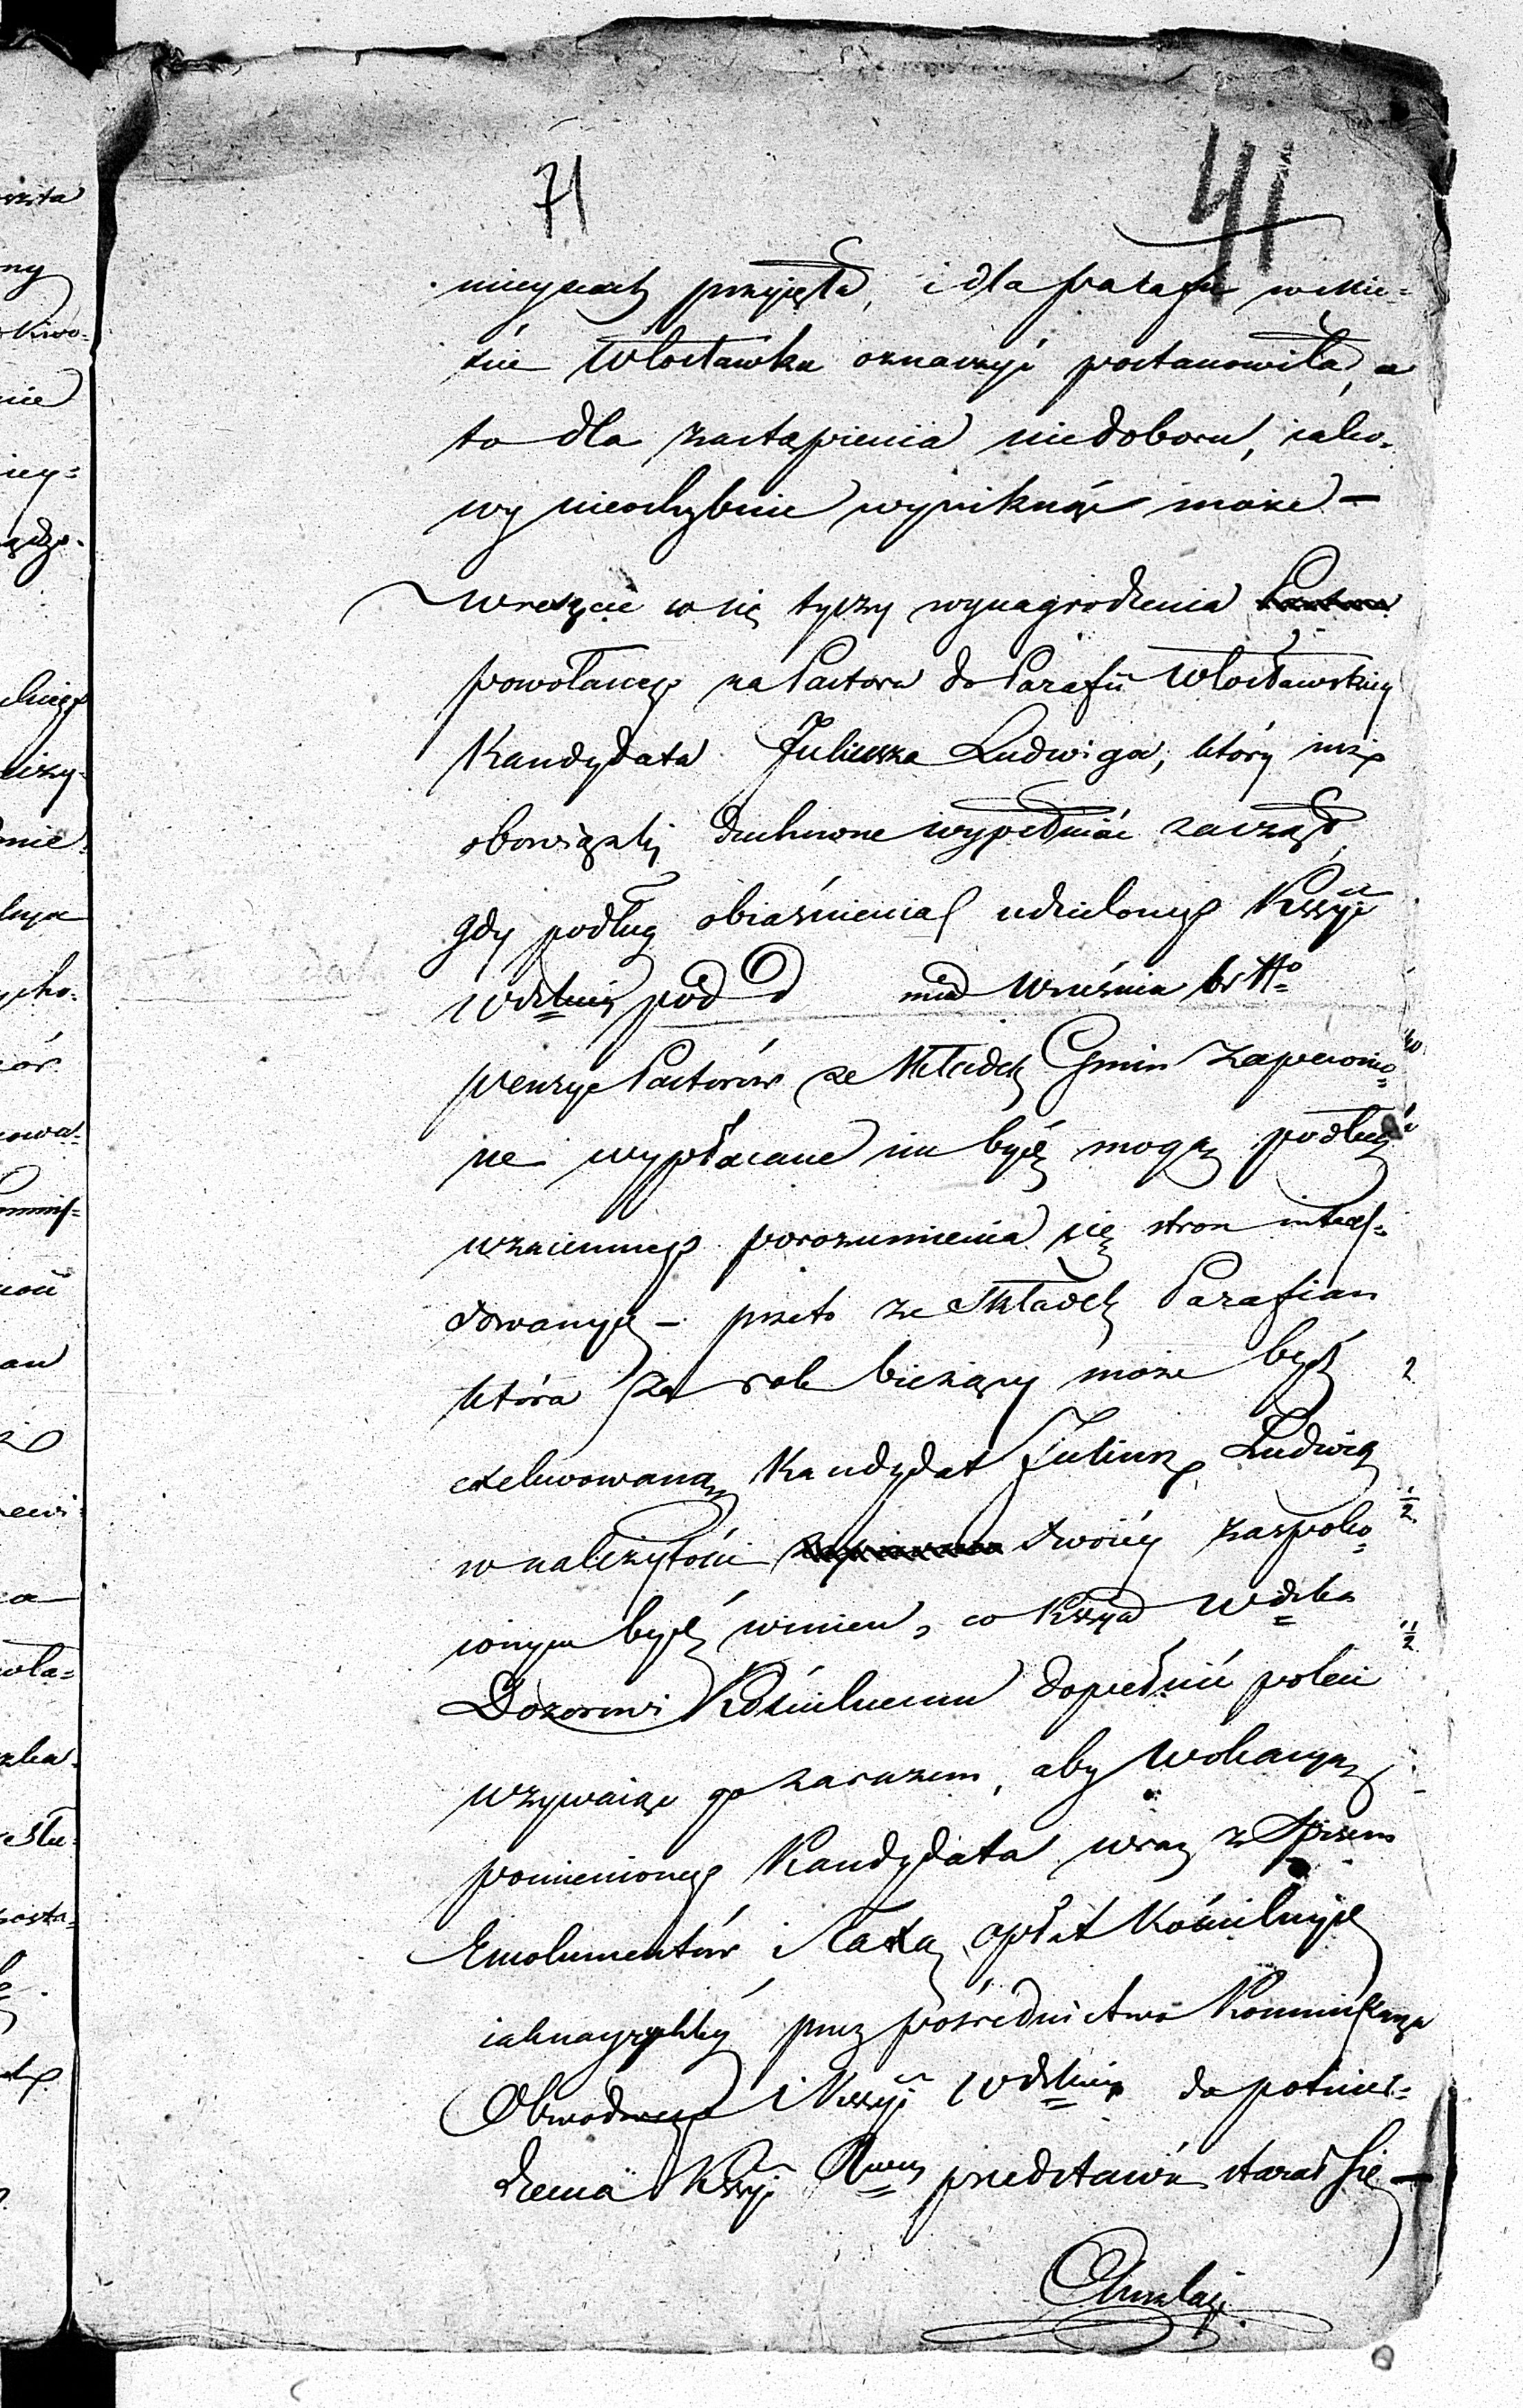 71
41
mieyscach przyjęta, i dla parafii w mie-
ście Włocławku oznaczyć postanowiła, a
to dla zastąpienia niedoboru, iako-
wy nieochybnie wyniknąć może —
Wreszcie co się tyczy wynagrodzenia
powołanego na Pastora do Parafii Włocławskiey
Kandydata Juliusza Ludwiga, który iuż
obowiązki duchowne wypełniać zaczął,
gdy podług obiaśnienia udzielonego Kssyi
Wdzkiey pod d mca Września br No
pensye Pastorów ze składek Gmin zapewnio-
ne wypłacane im bydź mogą podług
wzaiemnego porozumienia się stron interes-
sowanych — przeto ze składek Parafian
która za rok bieżący może bydź
exekwowaną Kandydat Juliusz Ludwig
w należytości swoiey zaspoko-
ionym bydź winien, co Kssya Wdzka
Dozorowi Kościelnemu dopełnić poleci
wzywaiąc go zarazem, aby Wokacyą
pomienionego Kandydata wraz z Spisem
Emolumentów i Taxą opłat Kościelnych
iaknayrychley przez pośrednictwo Kommissarza
Obwodowego i Kssyi Wdzkiey do potwier-
dzenia Kssyi Rwey przedstawić starał się —